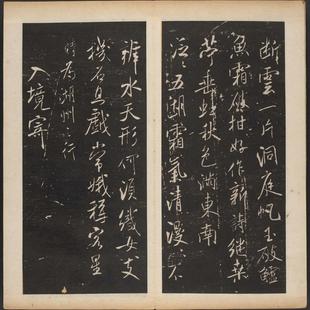 断雲一片洞庭帆玉破鱸
魚霜破柑好作新詩継桑
苧垂虹秋色滿東南
泛泛五湖霜氣清漫漫不
辨水天形何須織女支
機石且戲常娥稱客星
時為湖州之行
入境寄